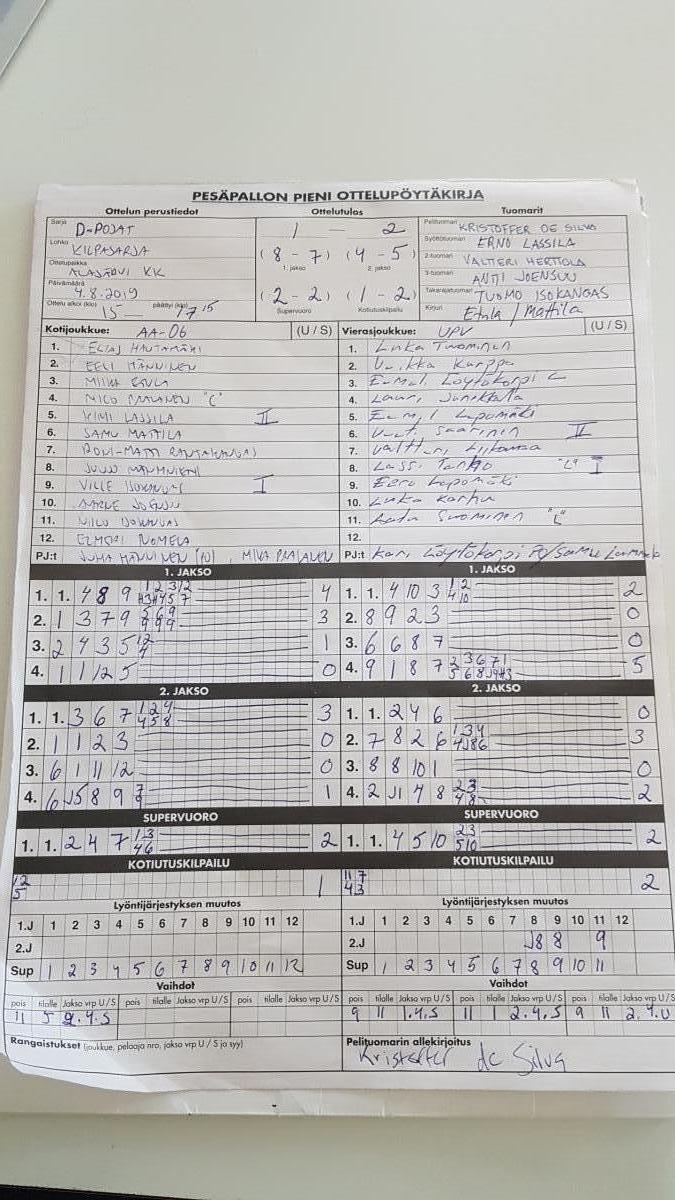 PESÄPALLON PIENI OTTELUPÖYTÄKIRJA
Ottelun perustiedot Ottelutulos Tuomarit
Sarja D-POJAT
Lohko KILPASARJA
Ottelupaikka ALAJÄRVI KK
Päivämäärä 4.8.2019
Ottelu alkoi (klo) 15 päättyi (klo) 17 15
1 — 2
(8 - 7) (4 - 5)
1. jakso 2. jakso
(2 - 2) (1 - 2)
Supervuoro Kotiutuskilpailu
Pelituomari KRISTOFFER DE SILVA
Syöttötuomari ERNO LASSILA
2-tuomari VALTTERI HERTTOLA
3-tuomari ANTTI JOENSUU
Takarajatuomari TUOMO ISOKANGAS
Kirjuri Etula / Mattila
Kotijoukkue: AA-06 (U / S) Vierasjoukkue: UPV (U / S)
1. ELIAS HAUTAMÄKI 1. Luka Tuominen
2. EELI HÄNNINEN 2. Karppa
3. MIIKA ETULA 3. Löytökorpi
4. NICO PAALANEN "C" 4. Lauri
5. KIMI LASSILA II 5. Lepomäki
6. SAMU MATTILA 6. Saarinen II
7. RONI-MATTI RANTAKANGAS 7. Valtteri
8. 8. Lassi "L" I
9. VILLE ISOKANGAS I 9. Eero Lepomäki
10. AARNE JOENSUU 10. Luka Karhu
11. NIILO ISOKANGAS 11. Suominen "L"
12. ELMERI NOMELA 12.
PJ:t JUHA HÄNNINEN (PJ), MIKA PAALANEN PJ:t Kari Löytökorpi
1. JAKSO 1. JAKSO
1. 1. 4 8 9 4 1. 1. 4 10 3 2
2. 1 3 7 9 3 2. 8 9 2 3 0
3. 2 4 3 5 1 3. 6 6 8 7 0
4. 1 1 12 5 0 4. 9 1 8 7 5
2. JAKSO 2. JAKSO
1. 1. 3 6 7 3 1. 1. 2 4 6 0
2. 1 1 2 3 0 2. 7 8 2 6 3
3. 6 1 11 12 0 3. 8 8 10 1 0
4. 6 J5 8 9 1 4. 2 J1 4 8 2
SUPERVUORO SUPERVUORO
1. 1. 2 4 7 2 1. 1. 4 5 10 2
KOTIUTUSKILPAILU KOTIUTUSKILPAILU
1 2 1 11 7 2
5 4 3
Lyöntijärjestyksen muutos Lyöntijärjestyksen muutos
1.J 1 2 3 4 5 6 7 8 9 10 11 12 1.J 1 2 3 4 5 6 7 8 9 10 11 12
2.J 2.J J8 8 9
Sup 1 2 3 4 5 6 7 8 9 10 11 12 Sup 1 2 3 4 5 6 7 8 9 10 11
Vaihdot Vaihdot
pois tilalle Jakso vrp U / S pois tilalle Jakso vrp U / S pois tilalle Jakso vrp U / S pois tilalle Jakso vrp U / S pois tilalle Jakso vrp U / S pois tilalle Jakso vrp U / S
11 5 2.4.S 9 11 1.4.S 11 1 2.4.S 9 11 2.4.U
Rangaistukset (joukkue, pelaaja nro, jakso vrp U / S ja syy) Pelituomarin allekirjoitus
Kristoffer de Silva